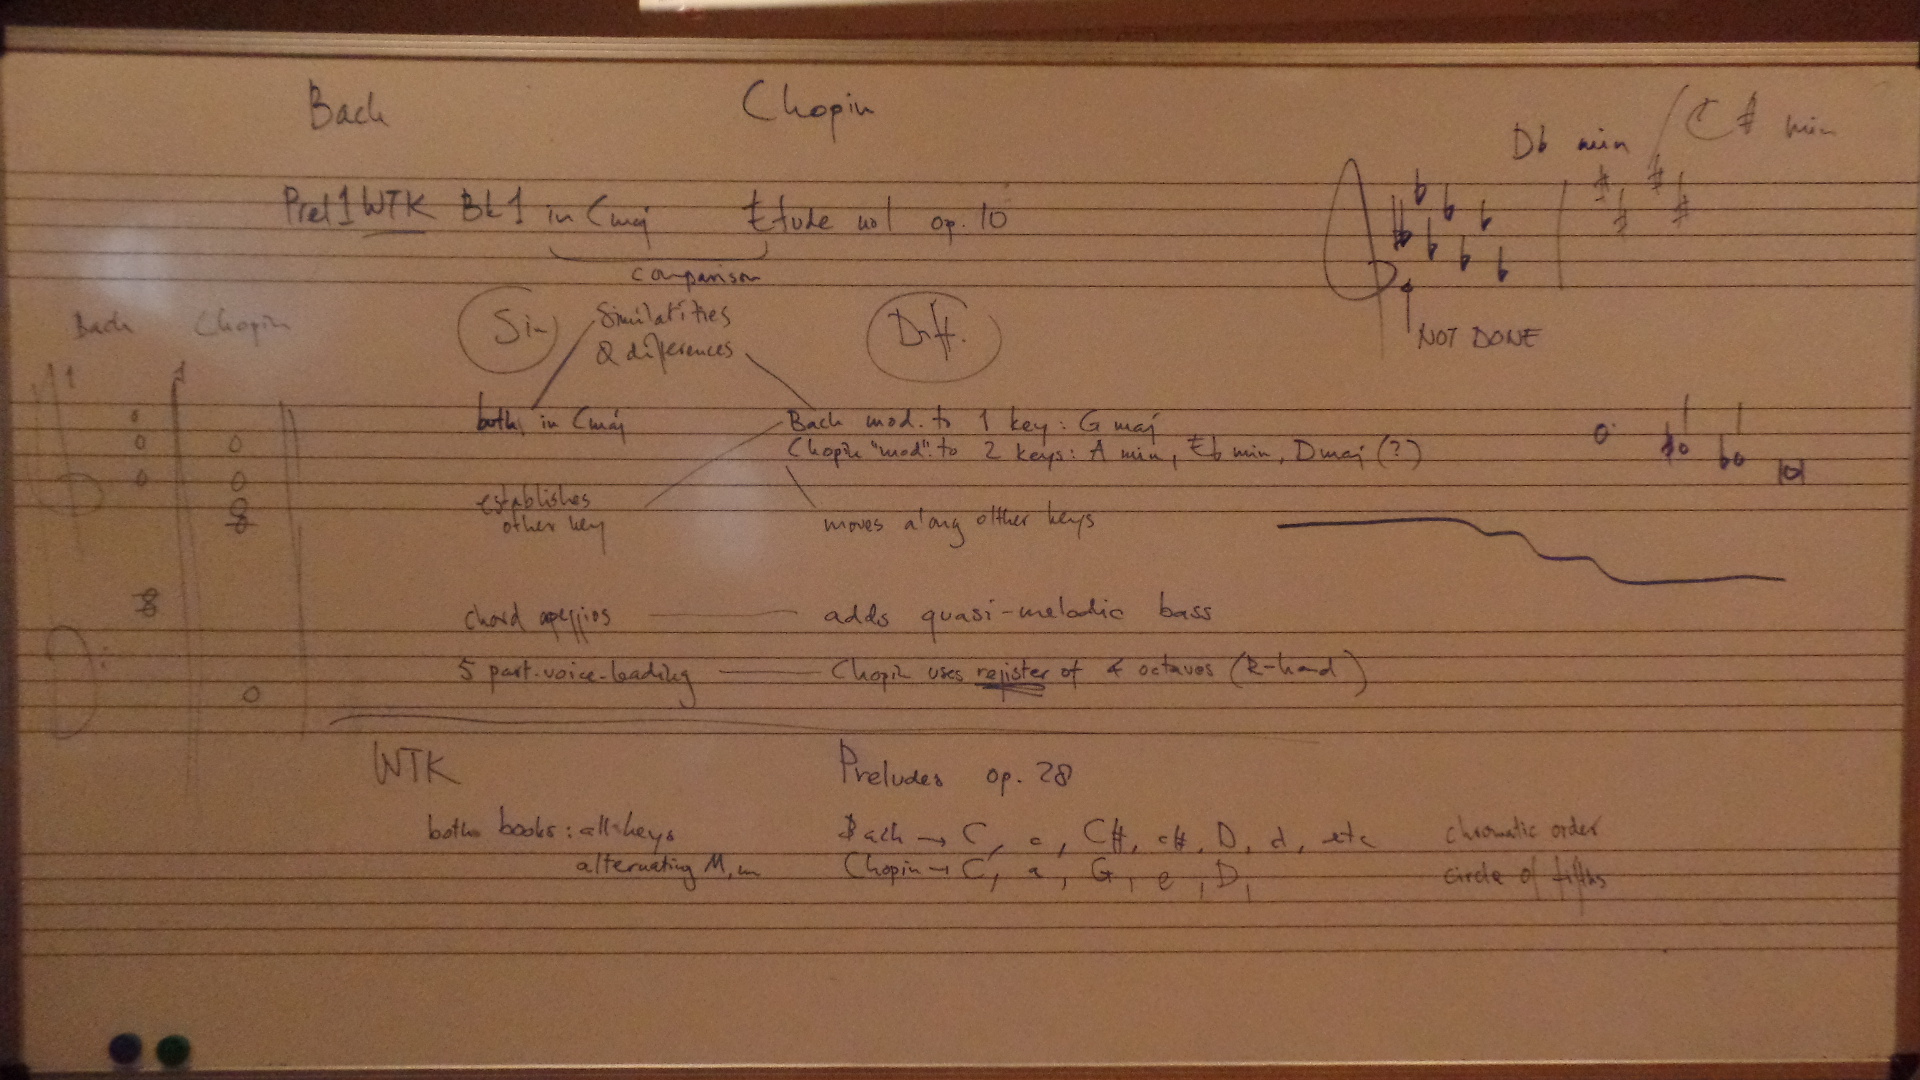 Bach Chopin
Db min / C# min
Prel 1 WTK Bk 1 in Cmaj Etude no 1 op. 10
comparison
Bach Chopin
Sim Similarities Diff.
& differences
NOT DONE
1 1
both in Cmaj Bach mod. to 1 key: G maj
Chopin "mod". to 2 keys: A min, Eb min, D maj (?)
establishes
other key moves along olther keys
chord apeggios adds quasi-melodic bass
5 part-voice-leading Chopin uses register of 4 octaves (R-hand)
WTK Preludes op. 28
both books: all keys Bach → C, c, C#, c#, D, d, etc chromatic order
alternating M, m Chopin → C, a, G, e, D, circle of fifths